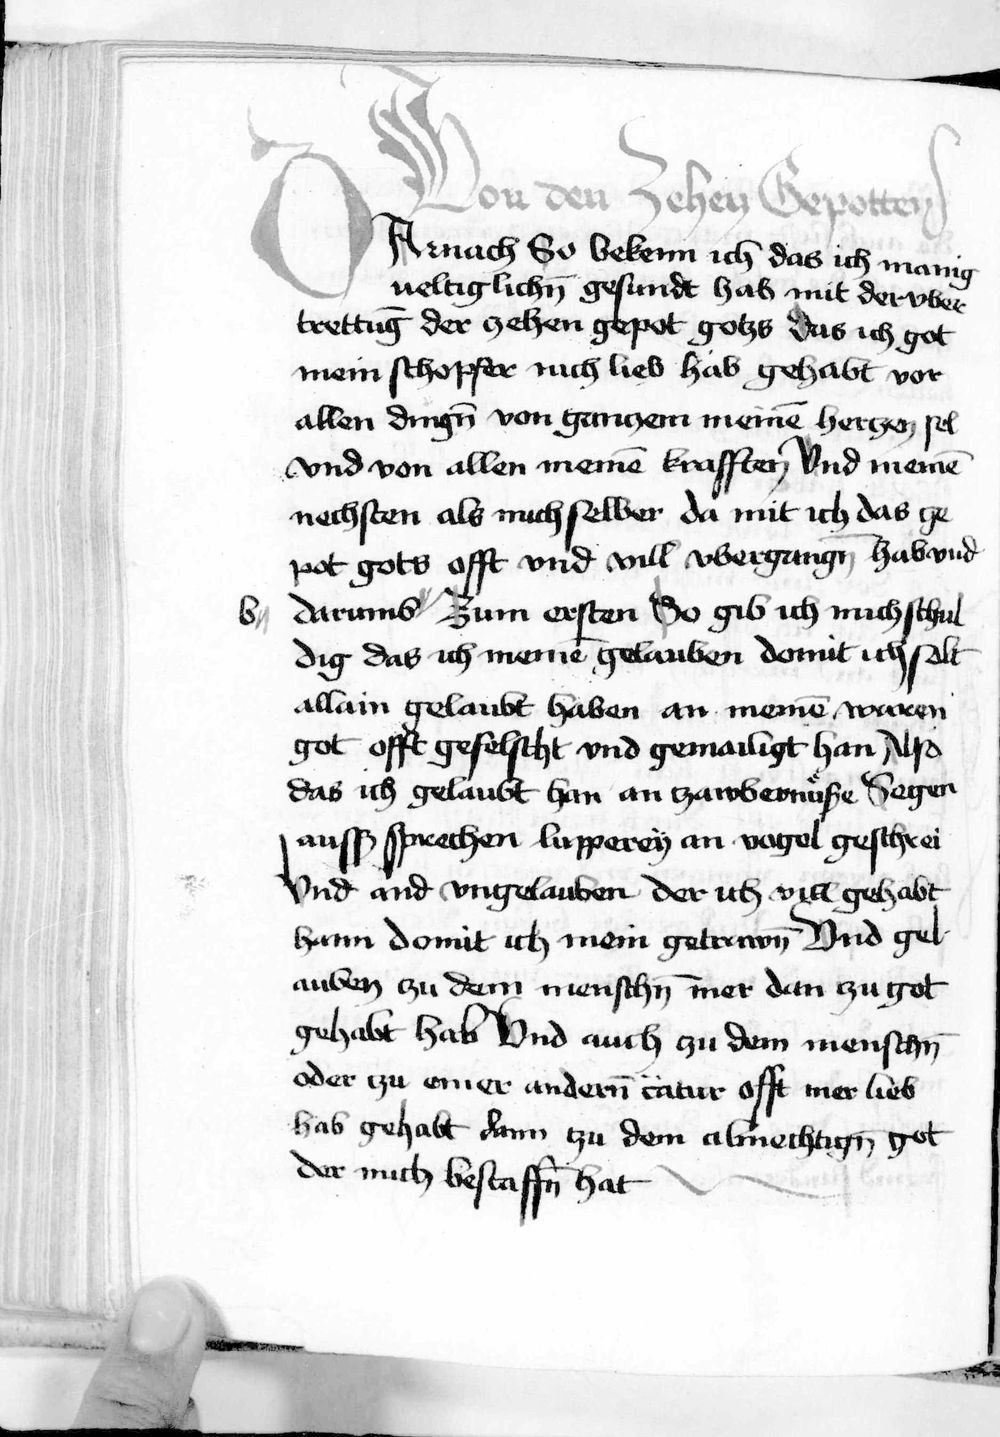 Von den Zehen Gepotten
DArnach So bekenn ich das ich manig
ueltiglichn̄ gesundt hab mit der vber
trettūg der zehen gepot gotzs das ich got
mein schopfer nich lieb hab gehabt vor
allen dingn̄ von ganczem meinē herczen sel
vnd von allen meinē krafften Vnd meinē
nechsten als mich selber da mit ich das ge
pot gots offt vnd vill vbergangn̄ hab vnd
b darumb Zum ersten So gib ich mich schul
dig das ich meinē gelauben domit ich solt
allain gelaubt haben an meinē waren
got offt gefelscht vnd gemailigt han Also
das ich gelaubt han an zawbernüße Segen
aussz sprechen lupperey an vogel geschrei
Vnd and vngelauben der ich vill gehabt
hann domit ich mein getrawn̄ Vnd gel
auben zu dem menschn̄ mer dan zu got
gehabt hab Vnd auch zu dem menschn̄
oder zu einer andern̄ c̄atur offt mer lieb
hab gehabt dann tzu dem almechtign̄ got
der mich beschaffn̄ hat